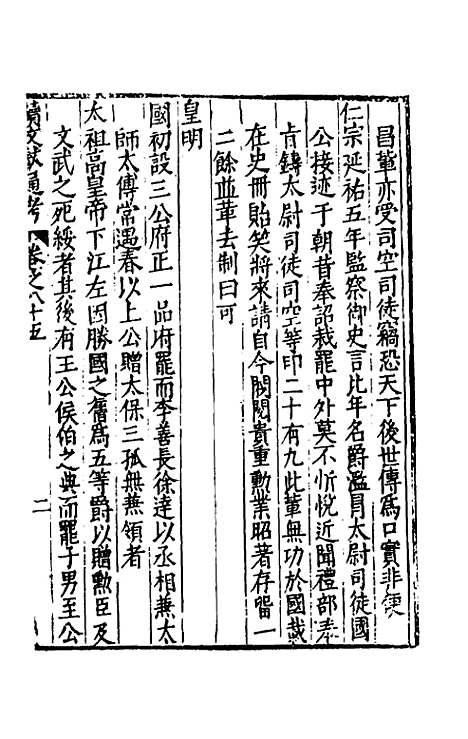 昌輩亦受司空司徒竊恐天下後世傳爲口實非便
仁宗延祐五年監察御史言比年名爵濫冒太尉司徒國
公接迹于朝昔奉詔裁罷中外莫不忻悅近聞禮部奉
旨鑄太尉司徒司空等印二十有九此軰無功於國載
在史冊貽笑將來請自今閥閱貴重勲業昭著存畱一
二餘並革去制曰可
皇明
國初設三公府正一品府罷而李善長徐逹以丞相兼太
師太傅常遇春以上公贈太保三孤無兼領者
太祖高皇帝下江左因勝國之舊爲五等爵以贈勲臣及
文武之死綏者其後有王公侯伯之典而罷子男至公
續文獻通考 卷之八十五 二